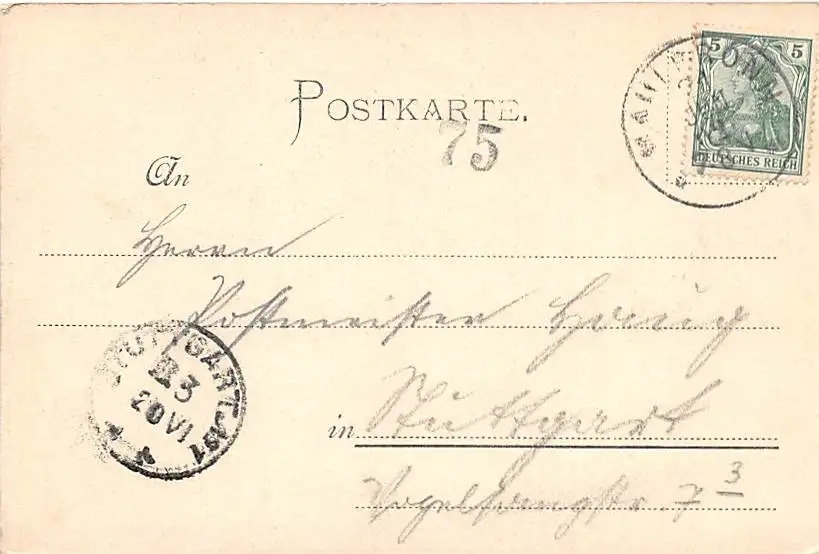 5 5
DEUTSCHES REICH
MAULBRONN
POSTKARTE.
75
An
Herrn
Postmeister
in Stuttgart
Vogelsangstr. 7 3
STUTTGART No1
3
20 VI